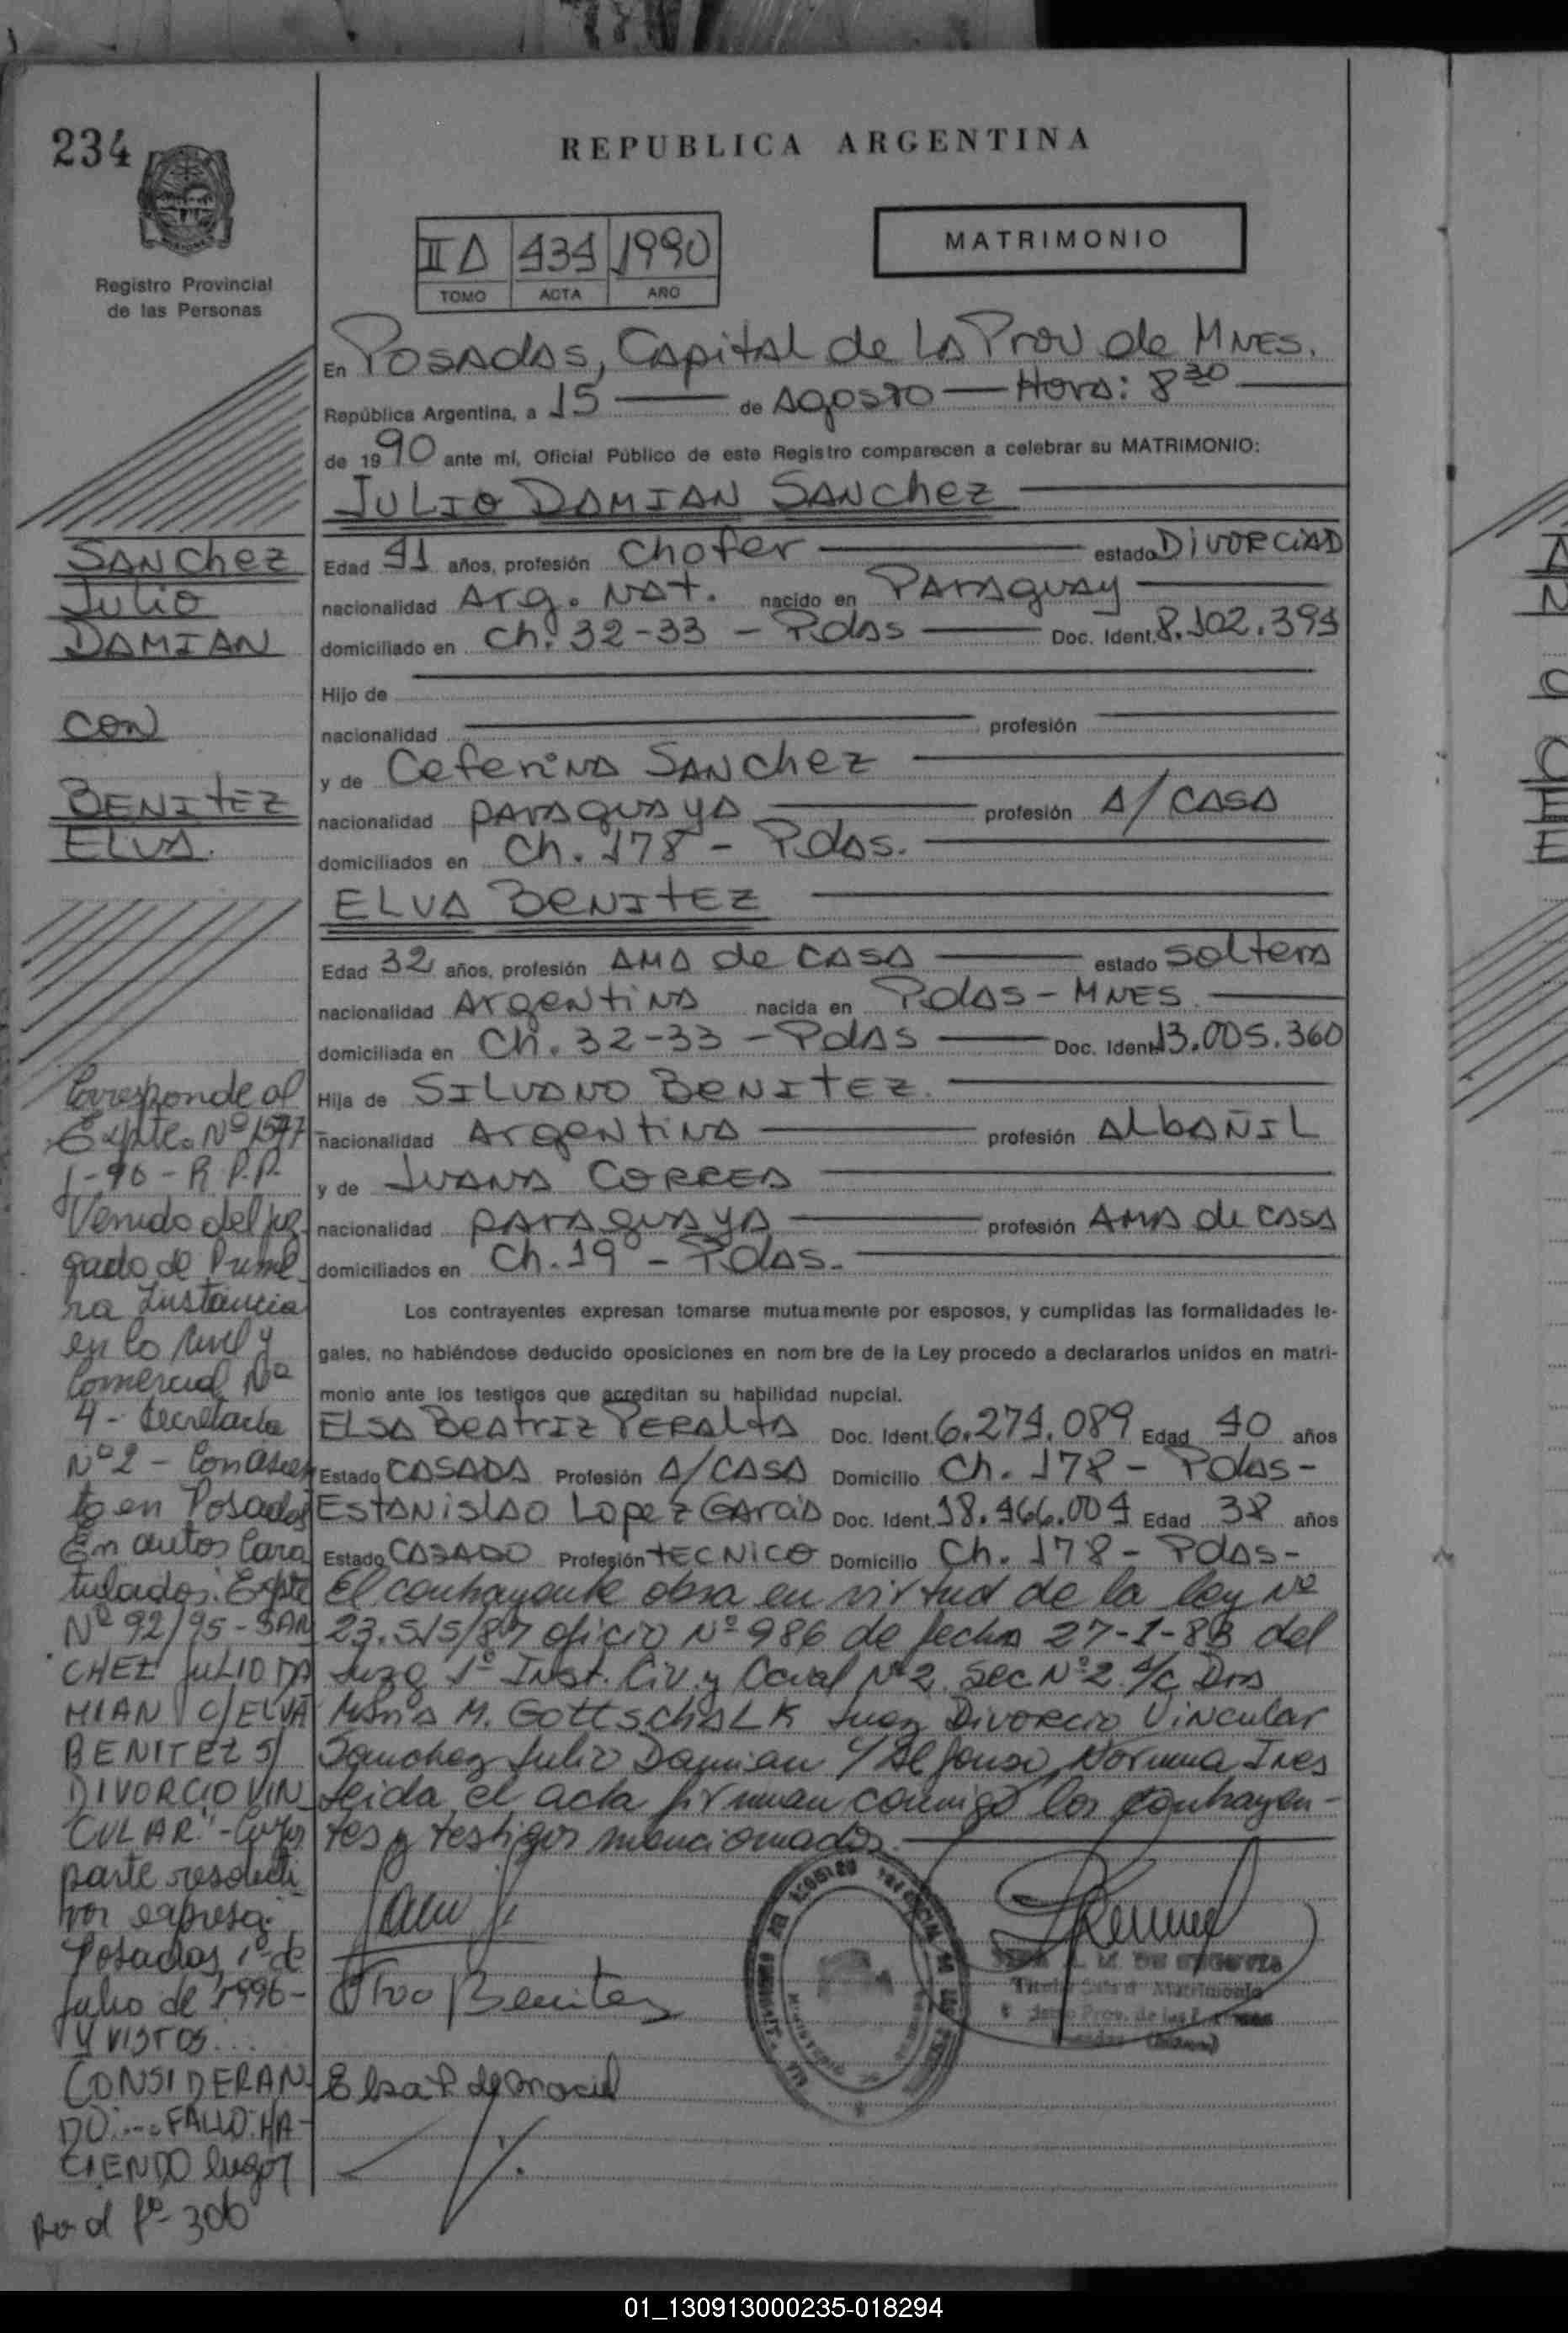 234
REPUBLICA ARGENTINA
II A 434 1990
TOMO ACTA AÑO
MATRIMONIO
Registro Provincial
de las Personas
En Posadas, Capital de La Prov de Mnes.
República Argentina, a 15 de Agosto Hora: 8 30
de 1990 ante mí, Oficial Público de este Registro comparecen a celebrar su MATRIMONIO:
JULIO DAMIAN SANchez
Edad 41 años, profesión Chofer estado DivorciAD
nacionalidad Arg. Nat. nacido en Paraguay
domiciliado en Ch. 32-33 - Pdas Doc. Ident. 8.102.394
Hijo de
nacionalidad profesión
y de Ceferina Sanchez
nacionalidad paraguaya profesión A/ CASA
domiciliados en Ch. 178 - Pdas.
ELVA BENITEZ
Edad 32 años, profesión AMA de CASA estado soltera
nacionalidad Argentina nacida en Pdas - Mnes.
domiciliada en Ch. 32-33 - Pdas Doc. Ident. 13.005.360
Hija de SILVANO BENITEZ.
nacionalidad Argentina profesión AlbAÑIL
y de JUANA CORREA
nacionalidad paraguaya profesión AMA de CASA
domiciliados en Ch. 19 - Pdas.
Los contrayentes expresan tomarse mutuamente por esposos, y cumplidas las formalidades le-
gales, no habiéndose deducido oposiciones en nombre de la Ley procedo a declararlos unidos en matri-
monio ante los testigos que acreditan su habilidad nupcial.
ELSA BEATRIZ PERALTA Doc. Ident. 6.274.089 Edad 40 años
Estado CASADA Profesión A/CASA Domicilio Ch. 178 - Pdas -
ESTANISLAO Lopez GARCIA Doc. Ident. 18.466.004 Edad 38 años
Estado CASADO Profesión TECNICO Domicilio Ch. 178 - Pdas -
El contrayente obra en virtud de la ley Nº
23.515/87 oficio Nº 986 de fecha 27-1-88 del
Juzg 1º Inst. Civ. y Cocial Nº 2. Sec Nº 2 A/C Dra
María M. GottschaLK Juez Divorcio Vincular
Sanchez Julio Damian C/ Alfonso, Norma Ines
Leida el acta firman conmigo los contrayen-
tes y testigos mencionados.
Elva Benitez
Titular Sala d Matrimonio
SANchez
Julio
DAMIAN
CON
BENITEZ
ELVA.
Corresponde al
Expte. Nº 1577
1-96 - R.P.P.
Venido del juz
gado de Prime
ra Instancia
en lo Civil y
Comercial Nº
4 - Secretaria
Nº 2 - Con asien
to en Posadas
En autos Cara
tulados: Expte
Nº 92/95 - SAN
CHEZ JULIO DA
MIAN C/ELVA
BENITEZ S/
DIVORCIO VIN
CULAR" - Cuya
parte resoluti
va expresa:
Posadas, 1º de
Julio de 1996 -
Y VISTOS...
CONSIDERAN
DO:... FALLO: HA-
CIENDO lugar
fº 306
01_130913000235-018294